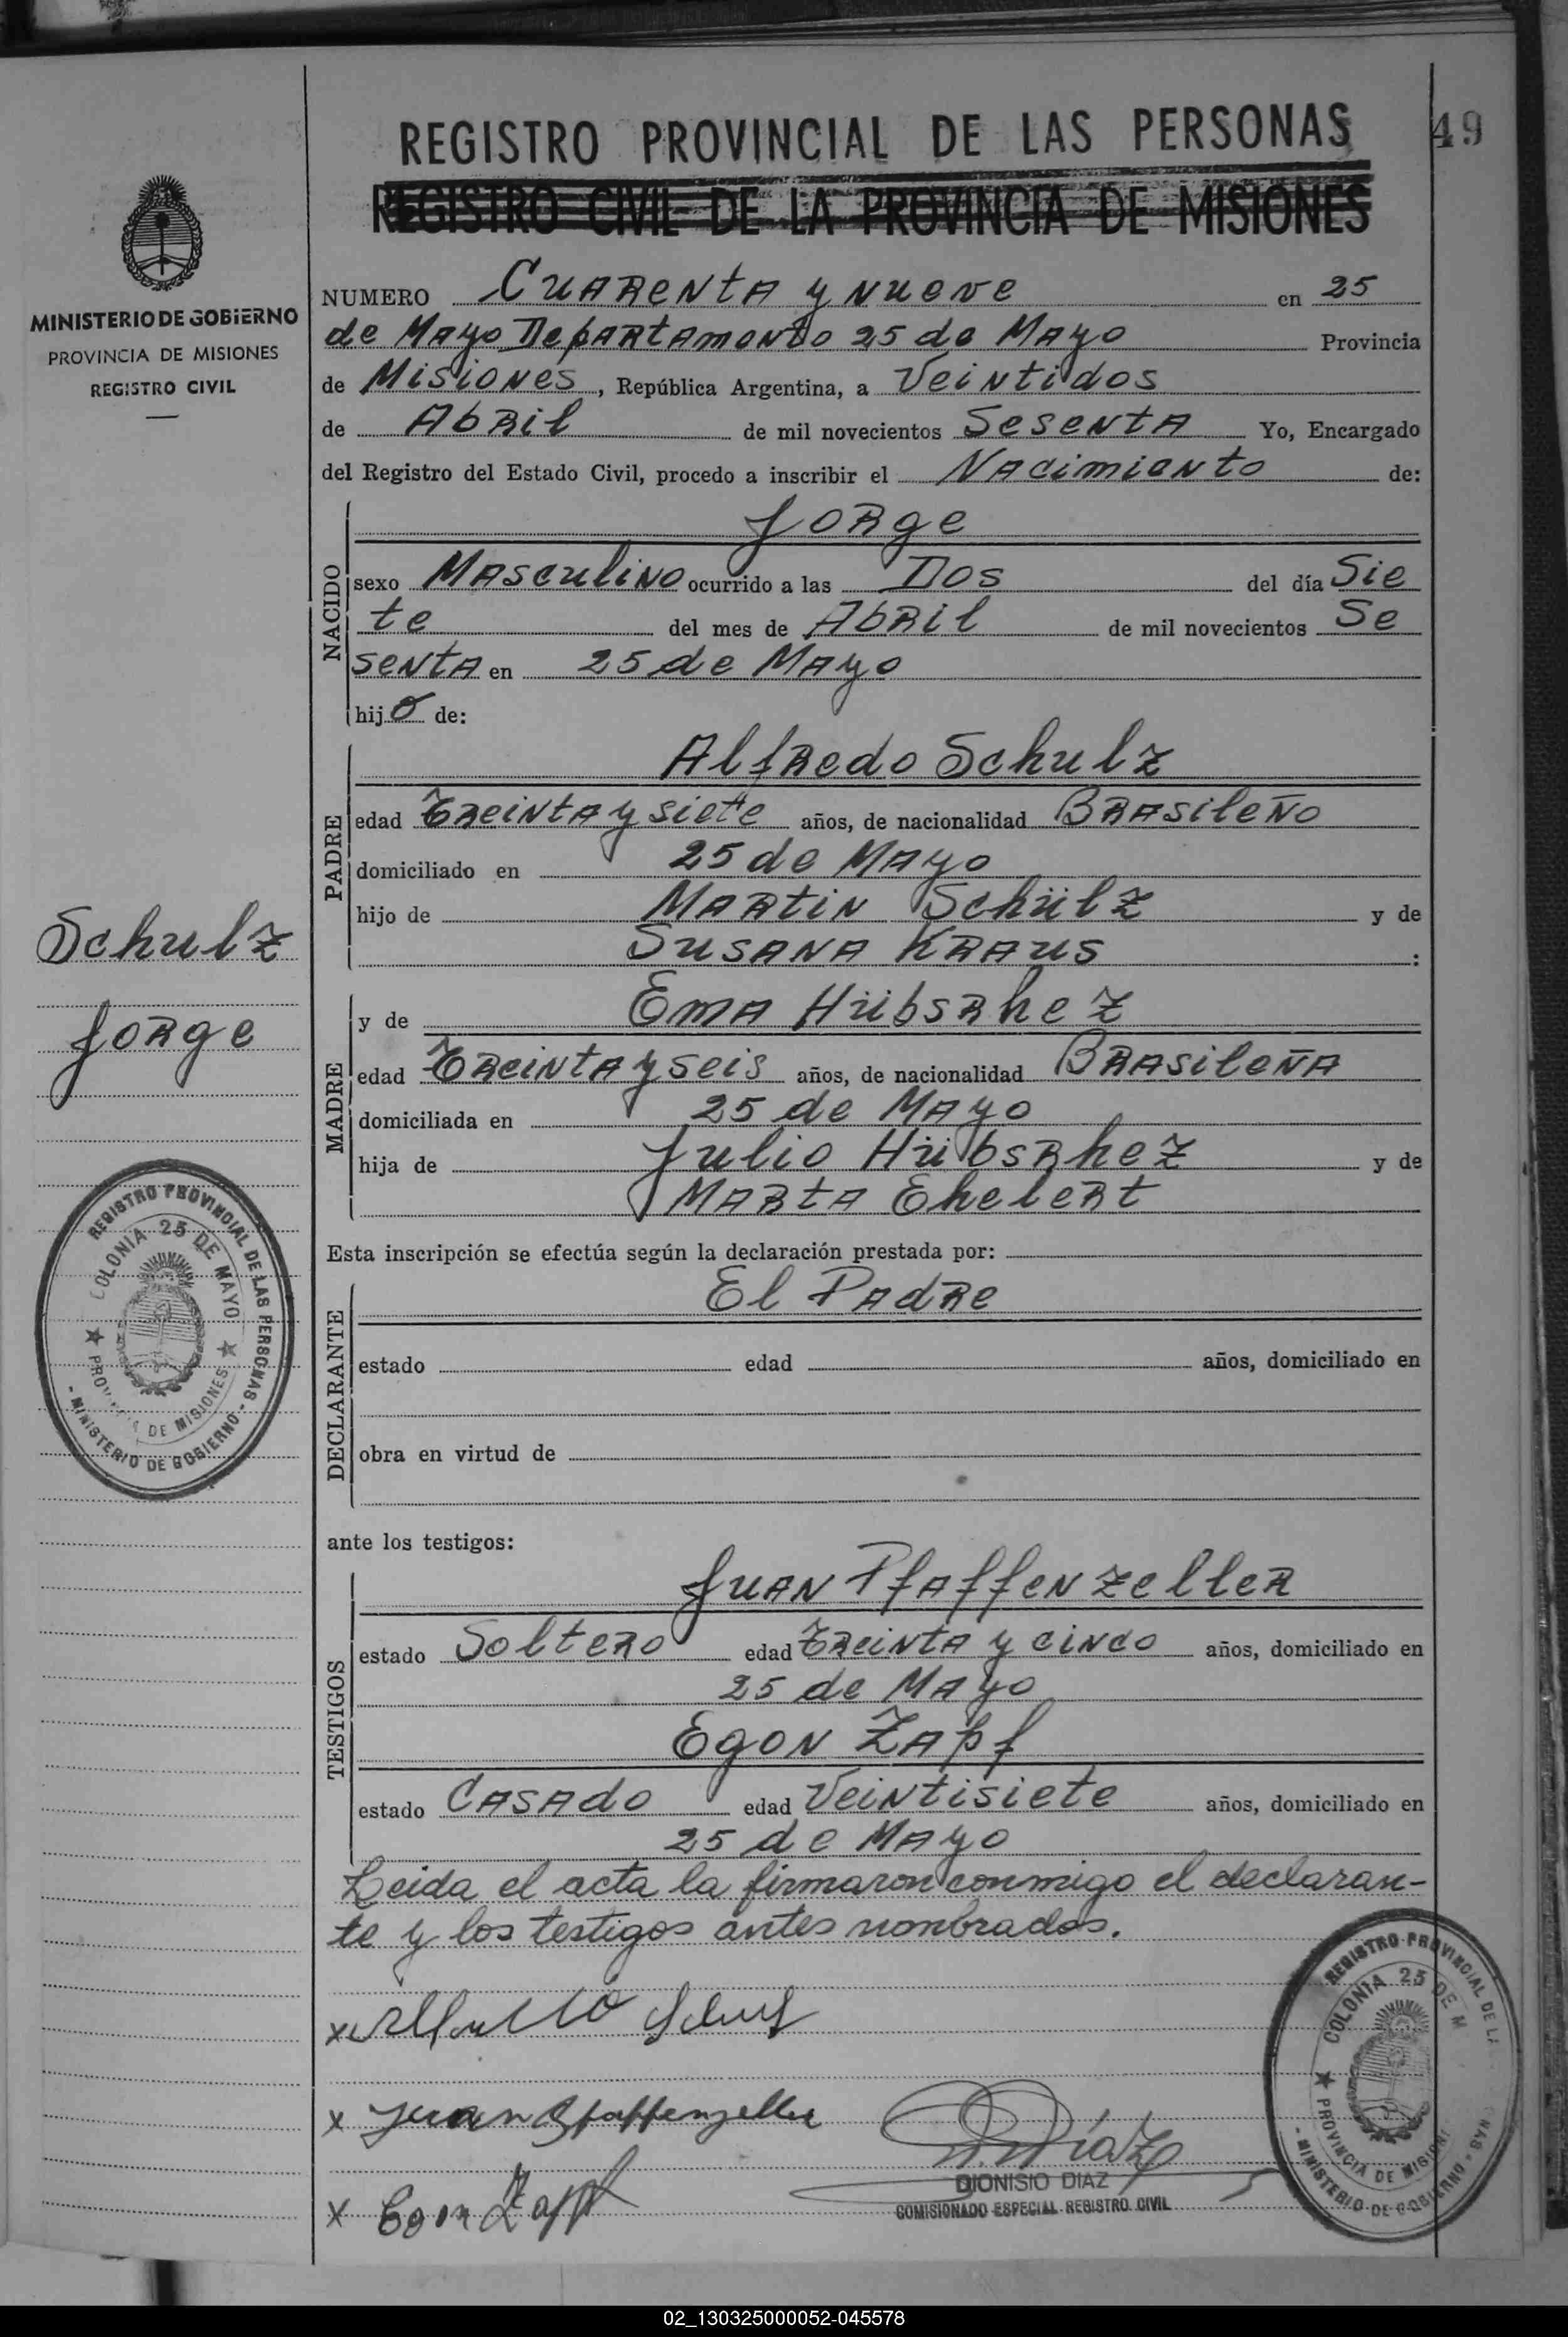 REGISTRO PROVINCIAL DE LAS PERSONAS
49
REGISTRO CIVIL DE LA PROVINCIA DE MISIONES
MINISTERIO DE GOBIERNO
PROVINCIA DE MISIONES
REGISTRO CIVIL
NUMERO Cuarenta y nueve en 25
de Mayo Departamento 25 de Mayo Provincia
de Misiones, República Argentina, a Veintidos
de Abril de mil novecientos Sesenta Yo, Encargado
del Registro del Estado Civil, procedo a inscribir el Nacimiento de:
NACIDO
Jorge
sexo Masculino ocurrido a las Dos del día Sie
te del mes de Abril de mil novecientos Se
senta en 25 de Mayo
hijo de:
PADRE
Alfredo Schulz
edad Treinta y siete años, de nacionalidad Brasileño
domiciliado en 25 de Mayo
hijo de Martin Schülz y de
Susana Kraus :
Schulz
Jorge
MADRE
y de Ema Hübsrhez
edad Treinta y seis años, de nacionalidad Brasileña
domiciliada en 25 de Mayo
hija de Julio Hübsrhez y de
Marta Ehelert
REGISTRO PROVINCIAL DE LAS PERSONAS
COLONIA 25 DE MAYO
PROVINCIA DE MISIONES
- MINISTERIO DE GOBIERNO -
Esta inscripción se efectúa según la declaración prestada por:
DECLARANTE
El Padre
estado edad años, domiciliado en
obra en virtud de
ante los testigos:
TESTIGOS
Juan Pfaffenzeller
estado Soltero edad Treinta y cinco años, domiciliado en
25 de Mayo
Egon Zapf
estado Casado edad Veintisiete años, domiciliado en
25 de Mayo
Leida el acta la firmaron conmigo el declaran-
te y los testigos antes nombrados.
x Alfredo Schulz
x Juan Pfaffenzeller
D. Díaz
DIONISIO DIAZ
COMISIONADO ESPECIAL REGISTRO CIVIL
x Egon Zapf
REGISTRO PROVINCIAL DE LA
COLONIA 25 DE M
PROVINCIA DE MISION
- MINISTERIO DE GOBIERNO -
02_130325000052-045578